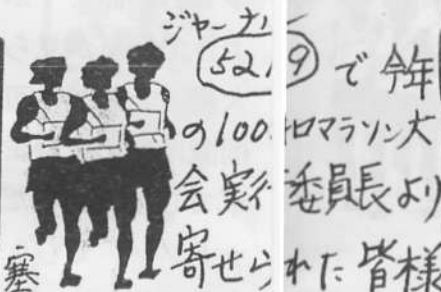 ジャーナル
5219で今年
の100キロマラソン大
会実行委員長より
寄せられた皆様
塞